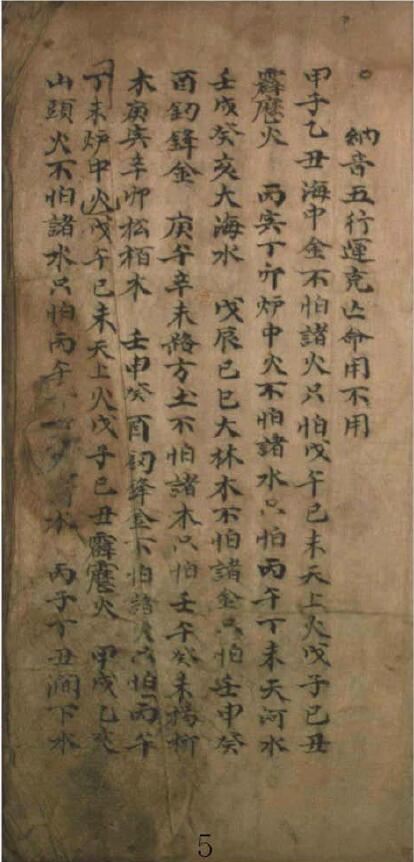 納音五行運克亡命用不用
甲子乙丑海中金不怕諸火只怕戊午己未天上火戊子己丑
霹靂火　丙寅丁卯炉中火不怕諸水只怕丙午丁未天河水
壬戌癸亥大海水　戊辰己巳大林木不怕諸金只怕壬申癸
酉釰鋒金　庚午辛未路方土不怕諸木只怕壬午癸未楊柳
木庚寅辛卯松柏木　壬申癸酉釰鋒金不怕諸火只怕丙午
丁未炉中火戊午己未天上火戊子己丑霹靂火　甲戌乙亥
山頭火不怕諸水只怕丙午　水　丙子丁丑澗下水
5